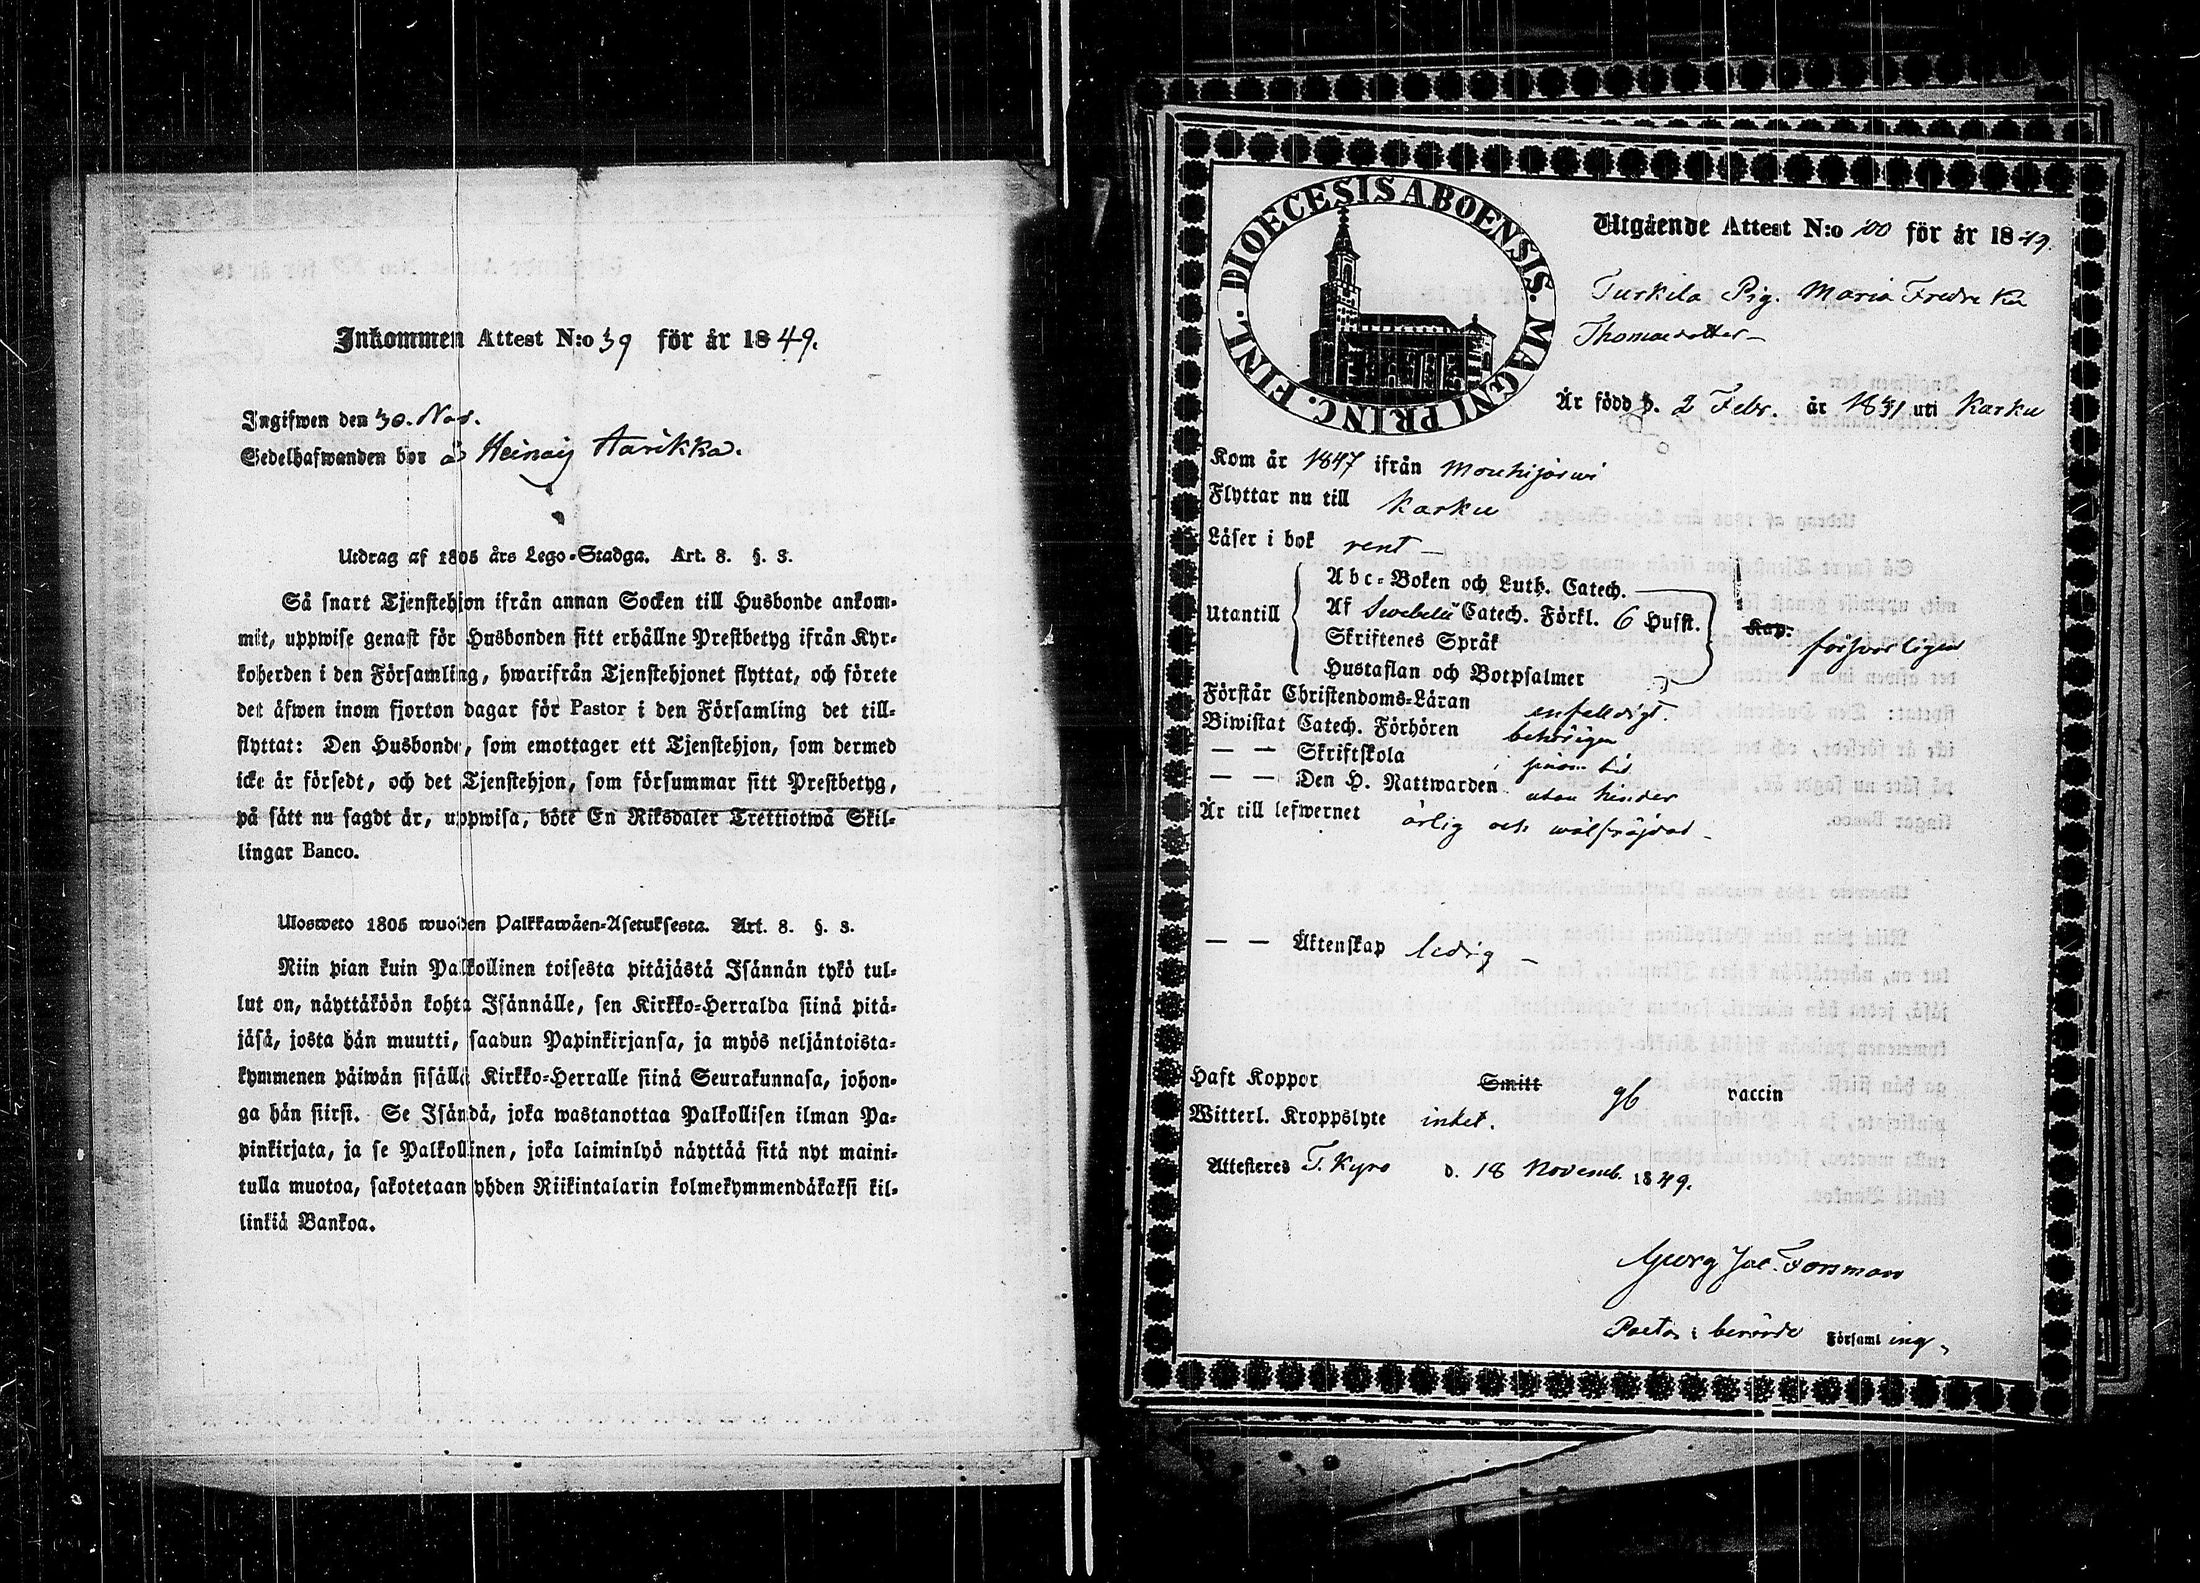 Inkommen Attest N:o 39 för år 1849.
Ingifwen den 30. Nov.
Sedelhafwanden bor å Heinoij Aarikka.
Utdrag af 1805 års Lego-Stadga. Art. 8. §. 3.
Så snart Tjenstehjon ifrån annan Socken till Husbonde ankom-
mit, uppwise genast för Husbonden sitt erhållne Prestbetyg ifrån Kyr-
koherden i den Församling, hwarifrån Tjenstehjonet flyttat, och förete
det äfwen inom fjorton dagar för Pastor i den Församling det till-
flyttat: Den Husbonde, som emottager ett Tjenstehjon, som dermed
icke är försedt, och det Tjenstehjon, som försummar sitt Prestbetyg,
på sätt nu sagdt är, uppwisa, böte En Riksdaler Trettiotwå Skil-
lingar Banco.
Ulosweto 1805 wuoden Palkkawäen-Asetuksesta. Art. 8. §. 3.
Niin pian kuin Palkollinen toisesta pitäjästä Isännän tykö tul-
lut on, näyttäköön kohta Isännälle, sen Kirkko-Herralda siinä pitä-
jäsä, josta hän muutti, saadun Papinkirjansa, ja myös neljäntoista-
kymmenen päiwän sisällä Kirkko-Herralle siinä Seurakunnasa, johon-
ga hän siirsi. Se Isändä, joka wastanottaa Palkollisen ilman Pa-
pinkirjata, ja se Palkollinen, joka laiminlyö näyttää sitä nyt maini-
tulla muotoa, sakotetaan yhden Riikintalarin kolmekymmendäkaksi kil-
linkiä Bankoa.
DIOECESIS ABOENSIS. MAGNI PRINC. FINL.
Utgående Attest N:o 100 för år 1849.
Turkila Pig. Maria Fredrika
Thomasdotter
Är född d. 2 Febr. år 1831 uti Karku
Kom år 1847 ifrån Mouhijärwi
Flyttar nu till Karku
Läser i bok rent
Abc-Boken och Luth. Catech.
Utantill Af Swebelii Catech. Förkl. 6 Hufst. Kap. försvarligen
Skriftenes Språk
Hustaflan och Botpsalmer
Förstår Christendoms-Läran enfaldigt.
Biwistat Catech. Förhören behörigen
— — Skriftskola
— — Den H. Nattwarden utan hinder
Är till lefwernet ärlig och wälfräjdad
— — Äktenskap ledig
Haft Koppor Smitt vaccin
Witterl. Kroppslyte intet.
Attesteres T. Kyro d. 18 Novemb. 1849.
Georg Jac. Forsman
Pastor i berörde Församling